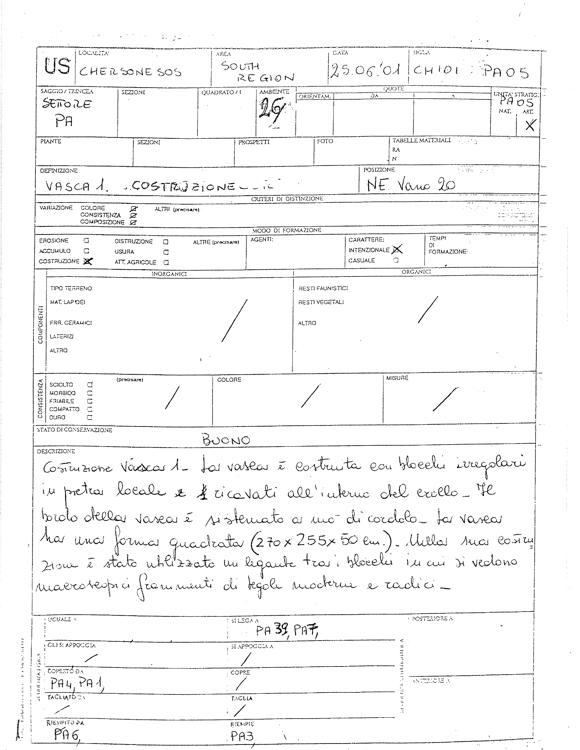 US
LOCALITA'
CHERSONESOS
AREA
SOUTH
REGION
DATA
25.06.'01
SIGLA
CH101 PA05
SAGGIO/TRINCEA
SETTORE
PA
SEZIONI
QUADRATO/I
AMBIENTE
26
QUOTE
ORIENTAM.
UNITA' STRATIG.
PA05
NAT. ART.
X
PIANTE
SEZIONI
PROSPETTI
FOTO
TABELLE MATERIALI
RA
N
DEFINIZIONE
VASCA 1. COSTRUZIONE
POSIZIONE
NE Vano 20
CRITERI DI DISTINZIONE
VARIAZIONE COLORE
CONSISTENZA
COMPOSIZIONE
ALTRI (precisare)
MODO DI FORMAZIONE
EROSIONE
ACCUMULO
COSTRUZIONE
DISTRUZIONE
USURA
ATT. AGRICOLE
ALTRE (precisare)
AGENTI:
CARATTERE:
INTENZIONALE
CASUALE
TEMPI
DI
FORMAZIONE:
COMPONENTI
INORGANICI
TIPO TERRENO
MAT. LAPIDEI
FRR. CERAMICI
LATERIZI
ALTRO
ORGANICI
RESTI FAUNISTICI
RESTI VEGETALI
ALTRO
CONSISTENZA
SCIOLTO
MORBIDO
FRIABILE
COMPATTO
DURO
(precisare)
COLORE
MISURE
STATO DI CONSERVAZIONE
BUONO
DESCRIZIONE
Costruzione Vasca 1 - La vasca è costruita con blocchi irregolari
in pietra locale e ricavati all'interno del crollo - Il
bordo della vasca è sistemato a mo' di cordolo - La vasca
ha una forma quadrata (270 x 255 x 50 cm). Nella sua costru
zione è stato utilizzato un legante tra i blocchi in cui si vedono
macroscopici frammenti di tegole moderne e radici -
UGUALE A
SI LEGA A
PA39, PA7,
POSTERIORE A
GLI SI APPOGGIA
SI APPOGGIA A
COPERTO DA
PA4, PA1,
COPRE
ANTERIORE A
TAGLIATO DA
TAGLIA
RIEMPITO DA
PA6,
RIEMPIE
PA3